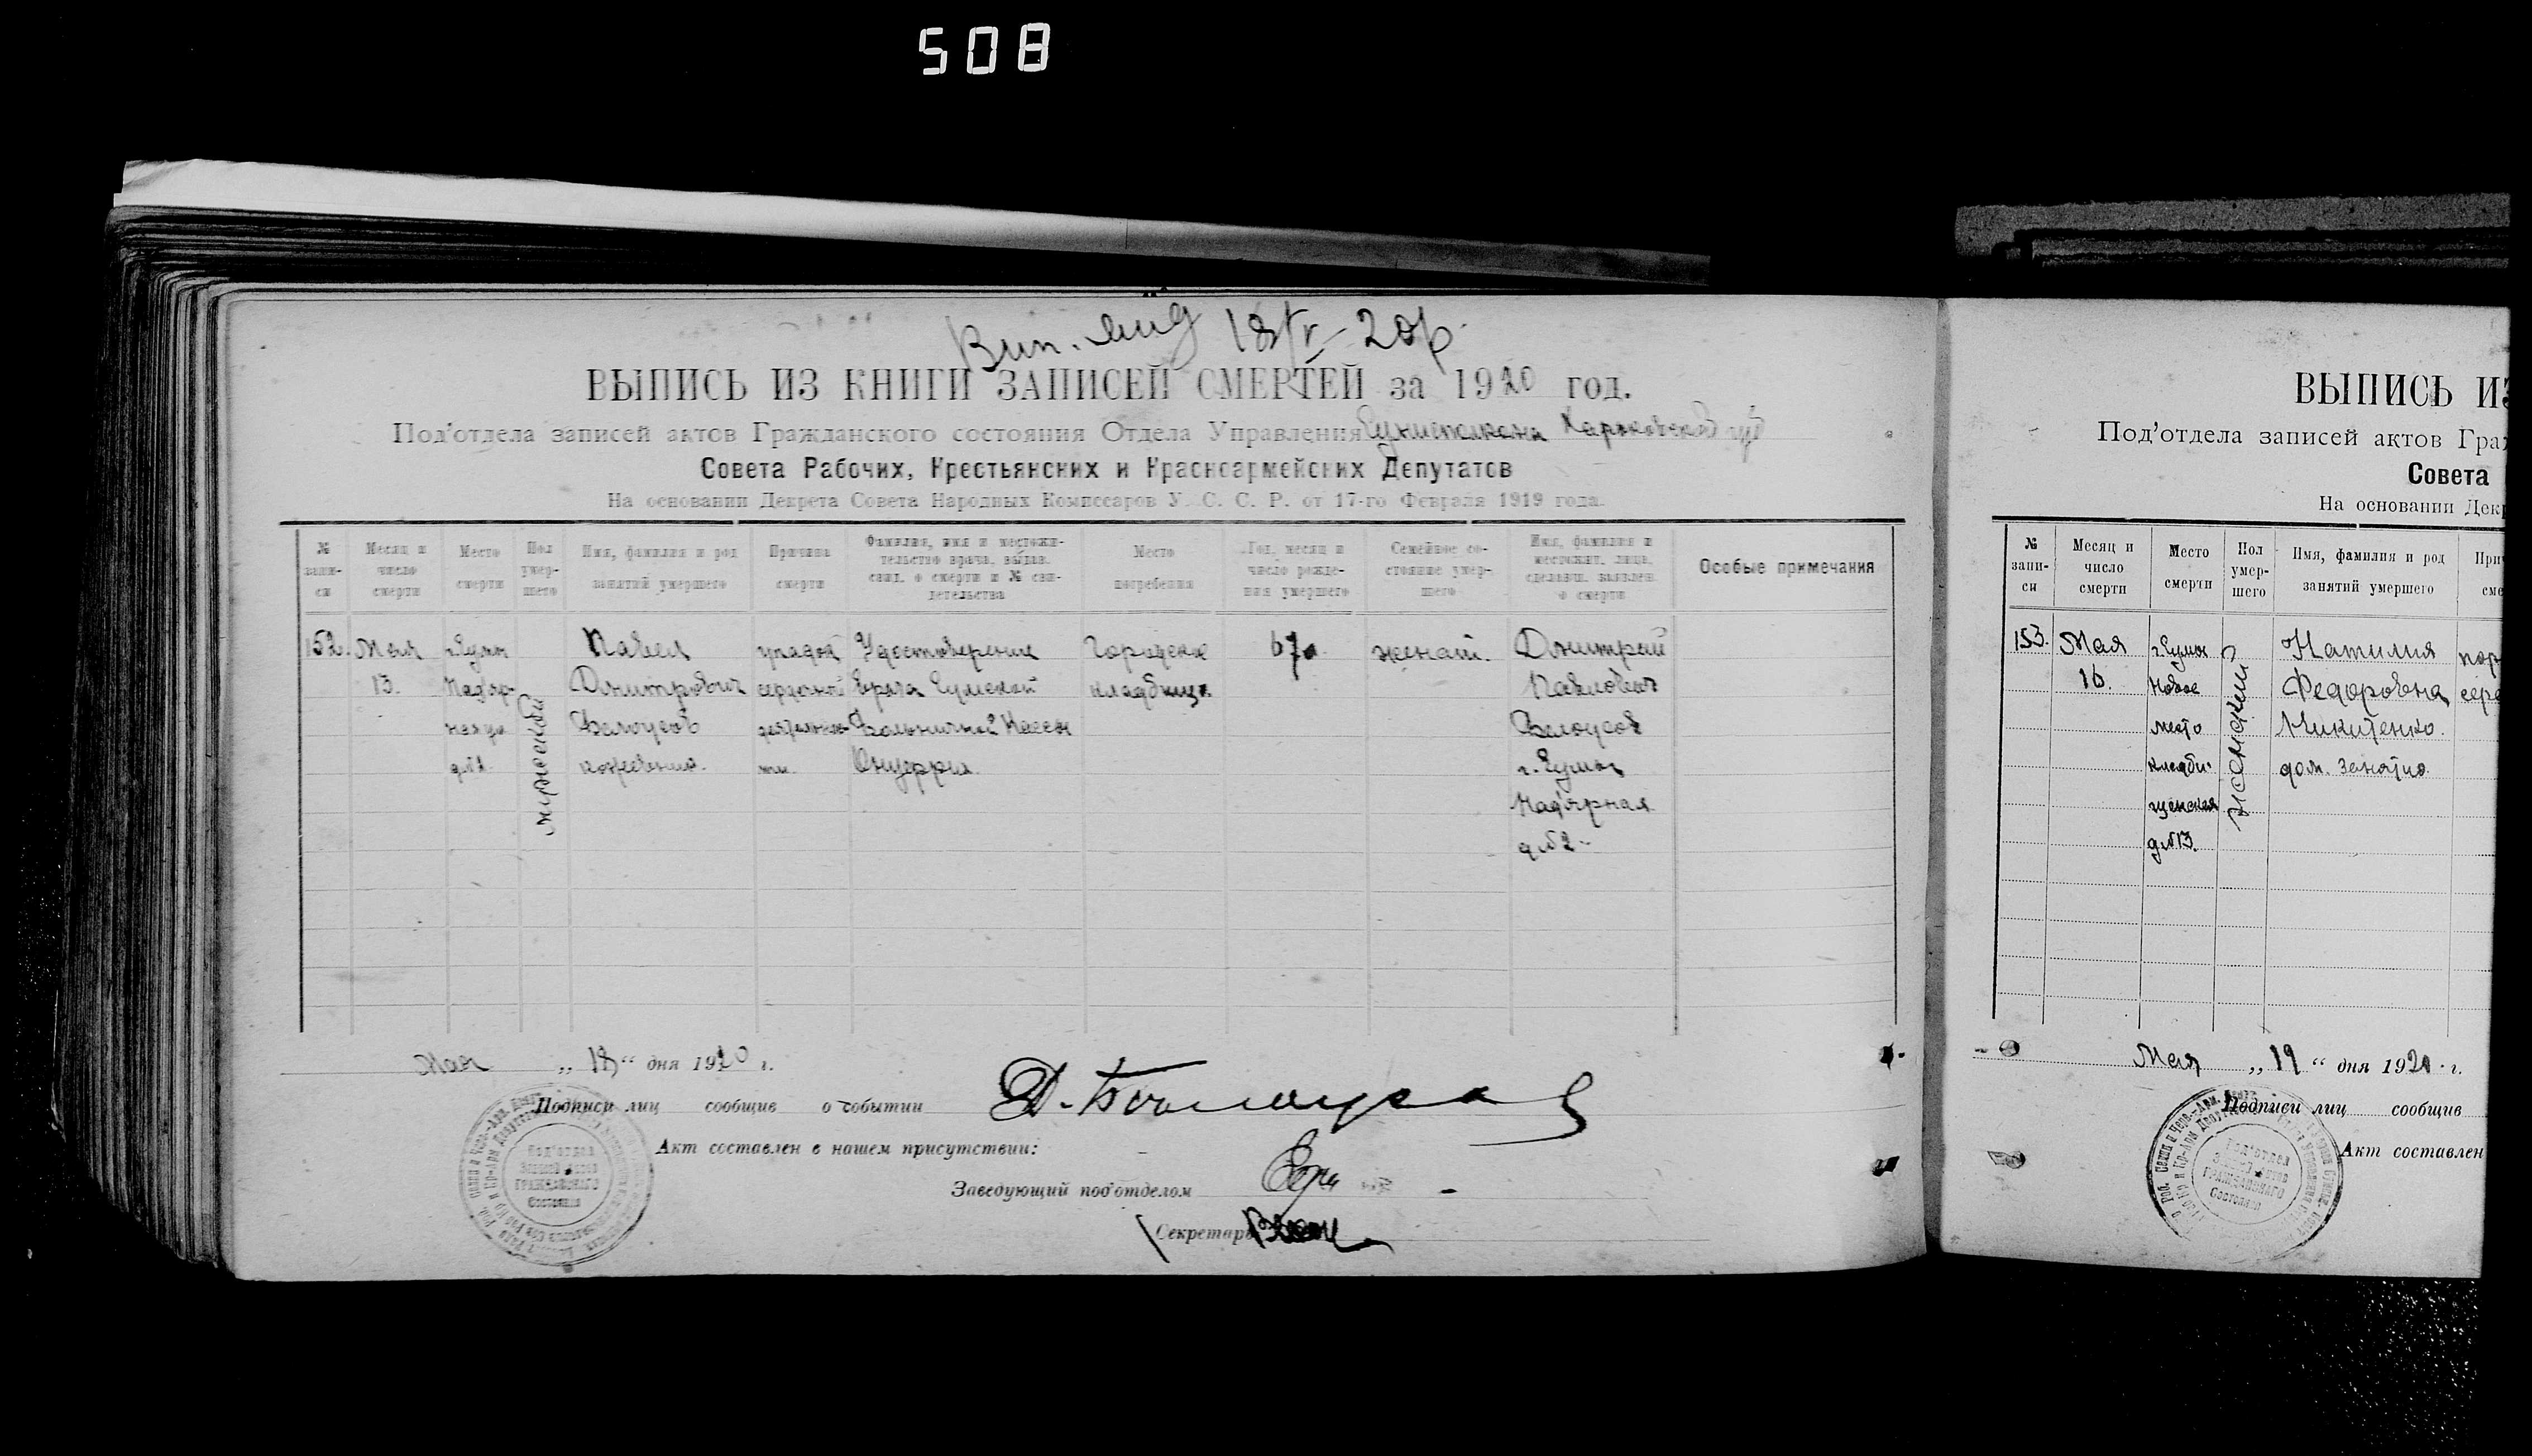 508
Вип. вид 18/V-20 р.
ВЫПИСЬ ИЗ КНИГИ ЗАПИСЕЙ СМЕРТЕЙ за 1920 год.
Под'отдела записей актов Гражданского состояния Отдела Управления Харьковской губ
Совета Рабочих, Крестьянских и Красноармейских Депутатов
На основании Декрета Совета Народных Комиссаров У. С. С. Р. от 17-го Февраля 1919 года.
№ запи- си
Месяц и число смерти
Место смерти
Пол умер- шего
Имя, фамилия и род занятий умершего
Причина смерти
Фамилия, имя и местожи- тельство врача, выдав. свид. о смерти и № сви- детельства
Место погребения
Год, месяц и число рожде- ния умершего
Семейное со- стояние умер- шего
Имя, фамилия и местожит. лица, сделавш. заявлен. о смерти
Особые примечания
152. Мая 13.
г. Сумы Над'яр- ная ул. д. № 2.
мужской
Павел Дмитрович Белоусов
упадок сердечной деятельнос-
Удостоверение Врача Сумской Больничной Кассы
Городское кладбище
67 л.
женат.
Дмитрий Павлович Белоусов г. Сумы Над'ярная д. № 2.
Мая „ 18 “ дня 1920 г.
Подписи лиц сообщив о событии Д. Белоусов
Акт составлен в нашем присутствии:
Заведующий под'отделом
Секретарь
Под'отдел
Записей Актов
ГРАЖДАНСКАГО
Состояния
ВЫПИСЬ ИЗ
Под'отдела записей актов Граж
Совета
На основании Дек
№ запи- си
Месяц и число смерти
Место смерти
Пол умер- шего
Имя, фамилия и род занятий умершего
При
сме
153. Мая 16.
г. Сумы Новое место кладби- щенская д. № 13.
женский
Наталия Федоровна Никитенко. дом. занятия
пор
серд
Мая „ 19 “ дня 1920 г.
Подписи лиц сообщив
Акт составлен
Под'отдел
Записей Актов
ГРАЖДАНСКАГО
Состояния